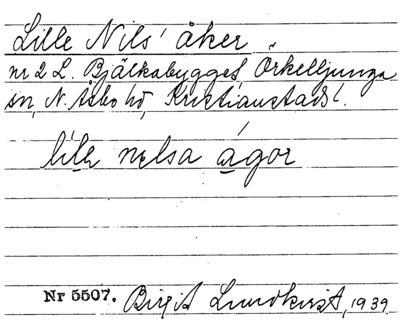 Lille Nils' åker
nr 2 L. Bjälkabygget, Örkelljunga
sn, N. Åsbo hd, Kristianstads l.
lilə nelsa ågor
Nr 5507. Birgit Lundkvist, 1939.